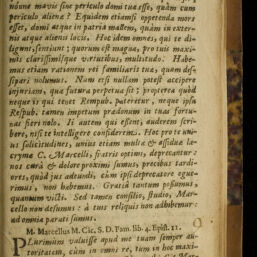 nbone mavis sine periculo domi tuæ esse, quàm cum
periculo alienæ? Equidem etiamsi oppetenda mors
esset, domi atque in patria mallem, quàm in exter-
nis atque alienis locis. Hoc idem omnes, qui te di-
ligunt, sentiunt; quorum est magna, pro tuis maxi-
mis clarissimisque virtutibus, multitudo. Habe-
mus etiam rationem rei familiaris tuæ, quam dis-
sipari nolumus. Nam etsi nullam potest accipere
injuriam, quæ futura perpetua sit; propterea quòd
neque is qui tenet Rempub. patietur, neque ipsa
Respub. tamen impetum prædonum in tuas fortu-
nas fieri nolo. Hi autem qui essent, auderem scri-
bere, nisi te intelligere confiderem. Hîc te unius
sollicitudines, unius etiam multæ & assiduæ la-
crymæ C. Marcelli, fratris optimi, deprecantur:
nos curâ & dolore proximi sumus, precibus tardio-
res, quòd jus adeundi, cùm ipsi deprecatore egue-
rimus, non habemus. Gratiâ tantum possumus,
quantum victi. Sed tamen consilio, studio, Mar-
cello non desumus: à tuis reliquis non adhibemur:
ad omnia parati sumus.
M. Marcellus M. Cic. S. D. Fam. lib. 4. Epist. 11.
Plurimum valuisse apud me tuam semper au-
toritatem, cùm in omni re, tum in hoc maxi-